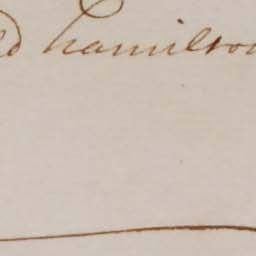 ld hamilton